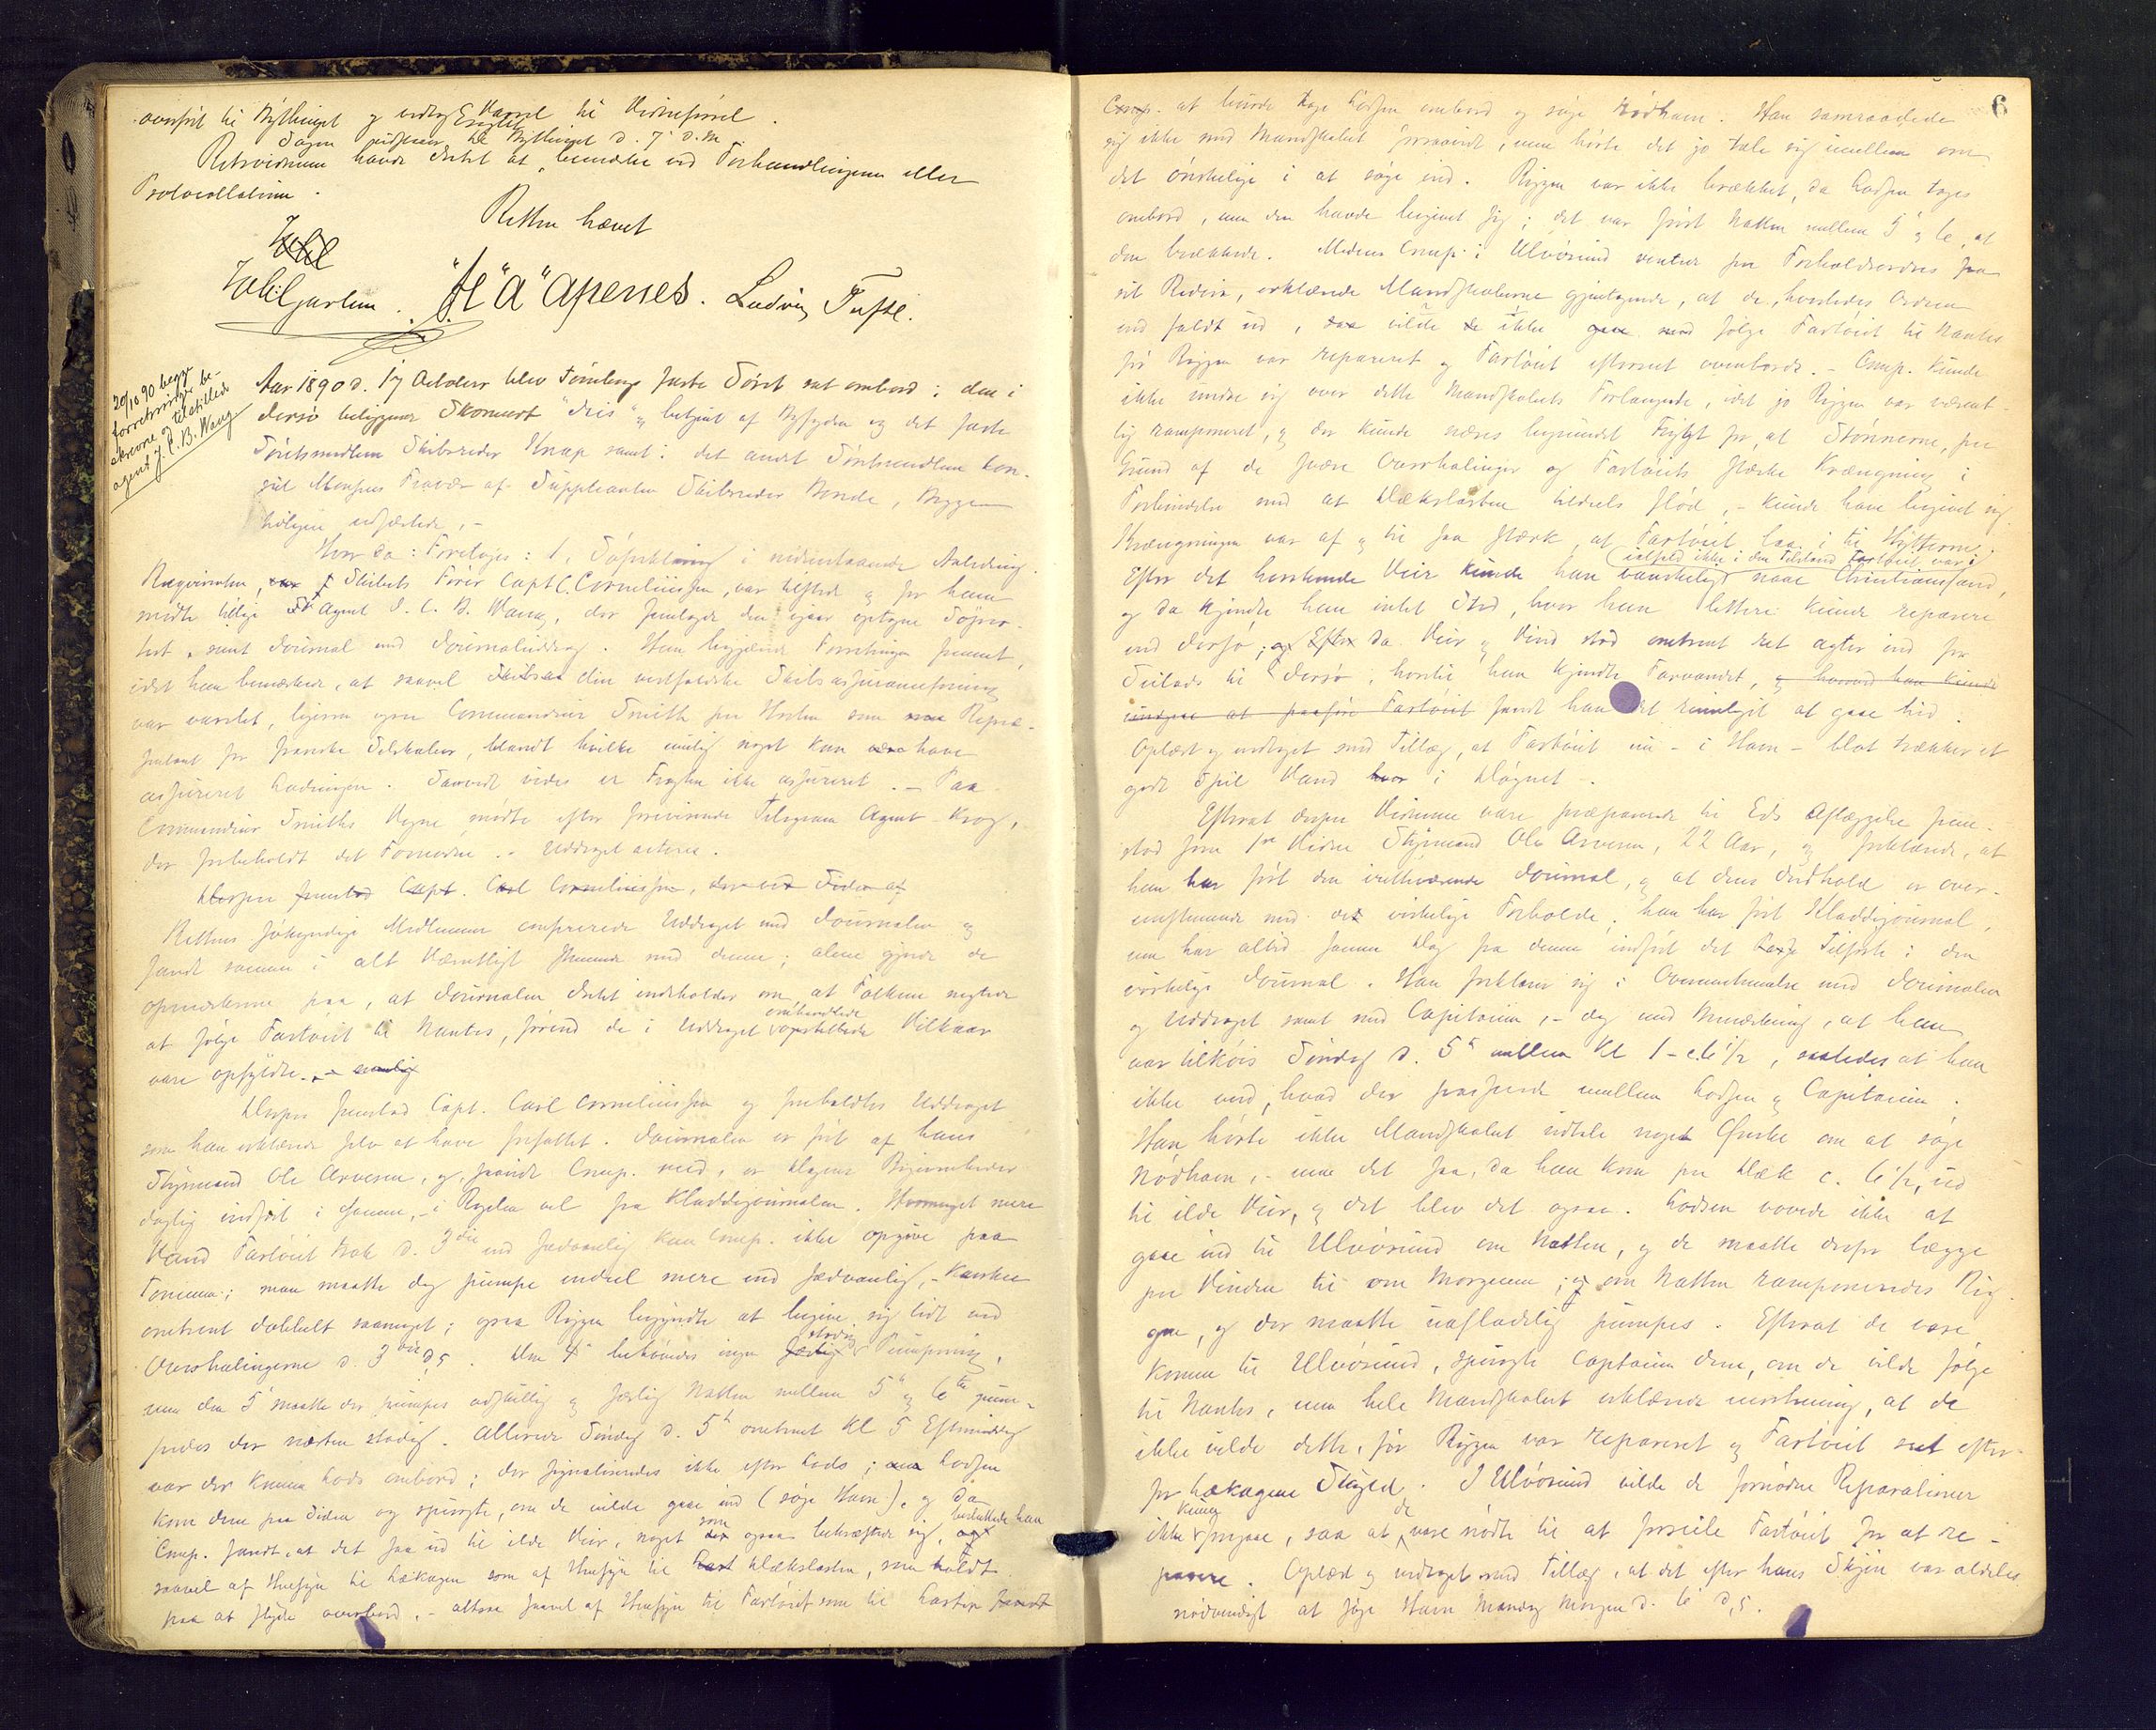 ovnfrit til Bythinget og vedtog Varsel til Vidneførsel.
Sagen udsættes til Bythinget d. 7 d.M.
Retsvidnerne havde Intet at bemærke ved Forhandlingerne eller
Protocollationen.
Retten hævet
"H" "A" Apenes. Ludvig Tufte.
20/10 90 begge
forretninger be-
skrevne og tilstillede
agent J.C.B. Wang
Aar 1890 d. 17 October blev Tønsbergs faste Søret sat ombord i den i
Jersø beliggende Skonnert "Iris" og betjent af Byfogden og det faste
Søretsmedlem Skibsreder Knap samt i det andet Søretsmedlem Kon-
sul Monsens Fravær af Suppleanten Skibsreder Bonde,
Hvor da: Foretoges: 1, Søforklaring i nedennævnte Anledning.
Reqvirenten, Skibets Fører Capt C. Corneliussen, var tilstede og for ham
mødte tillige Agent J. C. B. Wang, der fremlagde den igaar optagne Søpro-
test, samt Journal med Journaluddrag. Han begjærede Forretningen fremmet,
idet han bemærkede, at saavel den vestfoldske Skibsassuranceforening
var varslet, ligesom ogsaa Commandeur Smith per Horten som Repræ-
sentant for franske Selskaber, blandt hvilke muligt noget kan have
assureret Ladningen. Saavidt vides er Fragten ikke assureret. – Paa
Commandeur Smiths Vegne mødte efter foreviste Telegram Agent Krog,
der forbeholdt det Fornødne. – Uddraget acteres.
Derpaa fremstod Capt. Carl Corneliussen,
Rettens søkyndige Medlemmer confererede Uddraget med Journalen og
fandt samme i alt Væsentligt stemmende med denne; alene gjorde de
opmærksom paa, at Journalen Intet indeholder om, at Folkene negtede
at følge Fartøiet til Nantes, førend de i Uddraget omhandlede opstillede Vilkaar
vare opfyldte. – nemlig
Derpaa fremstod Capt. Carl Corneliussen og foreholdtes Uddraget
som han erklærede selv at have forfattet. Journalen er ført af hans
Styrmand Ole Arvesen, og, saavidt Comp. veed, er Dagens Begivenheder
daglig indført i samme, – i Regelen vel fra Kladdejournalen. Hvormeget mere
Vand Fartøiet trak d. 3die end sædvanlig kan Comp. ikke opgive paa
Tommer; man maatte dog pumpe endeel mere end sædvanlig, – kanskee
omtrent dobbelt saameget; ogsaa Riggen begyndte at begive sig lidt ved
Overhalingerne d. 3die ds. Den 4de behøvedes ingen stadig Pumpning,
men den 5te maatte der pumpes adskillig og særlig Natten mellem 5te og 6te pum-
pedes der næsten stadig. Allerede Søndag d. 5te omtrent Kl 5 Eftermiddag
var der kommen Lods ombord; der signaliseredes ikke efter Lods; Lodsen
kom dem paa Siden og spurgte, om de vilde gaae ind (søge Havn), og da
Comp. fandt, at det saa ud til ilde Veir, noget som ogsaa bekræftede sig, besluttede han
saavel af Hensyn til Lækagen som af Hensyn til Dækslasten, som holdt
paa at flyde overbord, – altsaa saavel af Hensyn til Fartøiet som til Lasten fandt
6
Comp. at burde tage Lodsen ombord og søge Nødhavn. Han samraadede
sig ikke med Mandskabet forsaavidt, men hørte det jo tale sig imellem om
det ønskelige i at søge ind. Riggen var ikke brækket, da Lodsen toges
ombord, men den havde begivet sig; det var først Natten mellem 5te og 6te, at
den brækkede. Medens Comp. i Ulvøsund ventede paa Forholdsordres fra
sit Rederi, erklærede Mandskaberne gjentagende, at de, hvorledes Ordren
end faldt ud, vilde ikke følge Fartøiet til Nantes
før Riggen var repareret og Fartøiet efterseet ovenbords. – Comp. kunde
ikke undre sig over dette Mandskabets Forlangende, idet jo Riggen var væsent-
lig ramponeret, og der kunde næres begrundet Frygt for, at Stønnerne, paa
Grund af de svære Overhalinger og Fartøiets stærke Krængning i
Forbindelse med at Dækslasten tildeels flød, – kunde have begivet sig.
Krængningen var af og til saa stærk, at Fartøiet laa i til Hytterne.
Efter det herskende Veir kunde han vanskeligt ialfald ikke i den Tilstand Fartøiet var i naae Christianssand,
og da kjendte han intet Sted, hvor han lettere kunde reparere
end Jersø; og da Veir og Vind stod omtrent ret agter ind for
Seilads til Jersø, hvortil han kjendte Farvandet, og hvorved han kunde
undgaae at paaføre Fartøiet fandt han det rimeligst at gaae hid.
Oplæst og vedtaget med Tillæg, at Fartøiet nu – i Havn – blot trækker et
godt Spil Vand i Døgnet –.
Efterat derpaa Vidnerne vare præparerede til Eds Aflæggelse frem-
stod som 1ste Vidne Styrmand Ole Arvesen, 22 Aar, og forklarede, at
han har ført den irettelagte Journal, og at dens Indhold er over-
ensstemmende med det virkelige Forholde; han har ført Kladdejournal,
men har altid samme Dag fra denne indført det Tilførte i den
virkelige Journal. Han forklarer sig i Overensstemmelse med Journalen
og Uddraget samt med Capitainen, – dog med Bemærkning, at han
var tilkøis Søndag d. 5te mellem Kl 1 – c. 6½, saaledes at han
ikke veed, hvad der passerede mellem Lodsen og Capitainen.
Han hørte ikke Mandskabet udtale noget Ønske om at søge
Nødhavn, – men det saa, da han kom paa Dæk c. 6½, ud
til ilde Veir, og det blev det ogsaa. Lodsen vovede ikke at
gaae ind til Ulvøsund om Natten, og de maatte derfor lægge
paa Vinden til om Morgenen; og om Natten ramponeredes Rig-
gen, og der maatte uafladelig pumpes. Efterat de vare
komne til Ulvøsund, spurgte Captainen dem, om de vilde følge
til Nantes, men hele Mandskabet erklærede enstemmig, at de
ikke vilde dette, før Riggen var repareret og Fartøiet seet efter
for Lækagens Skyld. I Ulvøsund vilde de fornødne Reparationer
ikke kunne foregaae, saa at de vare nødte til at forseile Fartøiet for at re-
parere. Oplæst og vedtaget med Tillæg, at det efter hans Skjøn var aldeles
nødvendigt at søge Havn Mandag Morgen d. 6te ds.